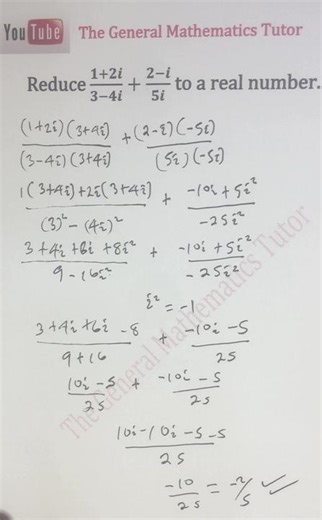 YouTube The General Mathematics Tutor
Reduce \frac{1+2i}{3-4i} + \frac{2-i}{5i} to a real number.
\frac{(1+2i)(3+4i)}{(3-4i)(3+4i)} + \frac{(2-i)(-5i)}{(5i)(-5i)}
\frac{1(3+4i)+2i(3+4i)}{(3)^2-(4i)^2} + \frac{-10i+5i^2}{-25i^2}
\frac{3+4i+6i+8i^2}{9-16i^2} + \frac{-10i+5i^2}{-25i^2}
i^2=-1
\frac{3+4i+6i-8}{9+16} + \frac{-10i-5}{25}
\frac{10i-5}{25} + \frac{-10i-5}{25}
\frac{10i-10i-5-5}{25}
\frac{-10}{25} = -2/5 ✓✓
The General Mathematics Tutor